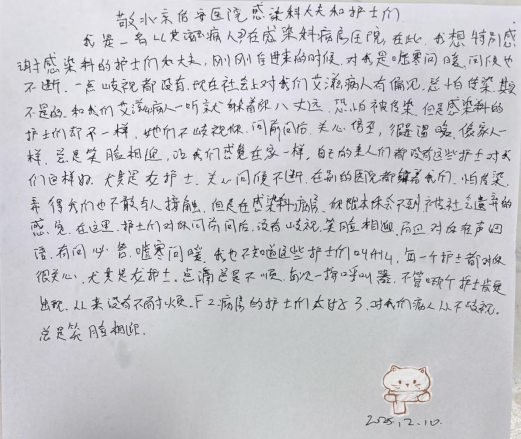 敬北京佑安医院感染科大夫和护士们
我是一名以艾滋病人現在感染科病房住院,在此,我想特别感
谢感染科的护士们和大夫,刚刚住进来的时候,对我是嘘寒问暖,问候也
不断,一点歧视都没有.现在社会上对我们艾滋病人有偏见,总怕传染,
不是的.和我们艾滋病人一听就躲着你八丈远,恐怕被传染,但是感染科的
护士们却不一样,她们不歧视你,问前问后,关心倍至,很温暖,像家人一
样,总是笑脸相迎,让我们感觉在家一样,自己的亲人们都没有这些护士对我
们这样好.尤其是女护士.关心问候不断.在别的医院都躲着我们,怕传染,
弄得我们也不敢与人接触.但是在感染科病房,体不到被社会遗弃的
感觉.在这里,护士们对你问前问后,没有歧视,笑脸相迎,
语.有问必答.嘘寒问暖,我也不知道这些护士们叫什么,每一个护士都对你
很关心,尤其是女护士.点滴总是不顺,每次一按呼叫器,不管哪个护士
出现.从来没有不耐火烦.F2病房的护士们太好了,对我们病人从不歧视.
总是笑脸相迎.
2025.12.10.